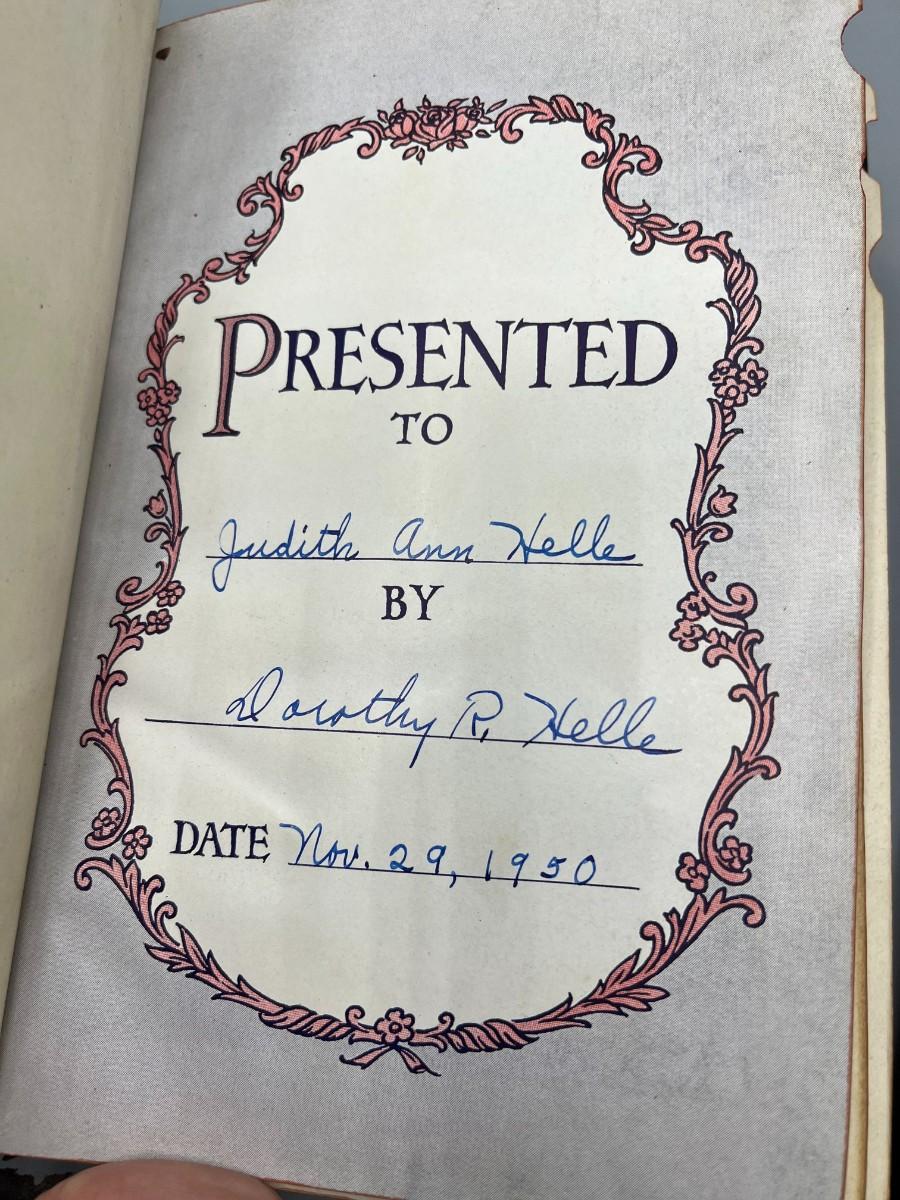 PRESENTED
TO
Judith Ann Helle
BY
Dorothy R. Helle
DATE Nov. 29, 1950